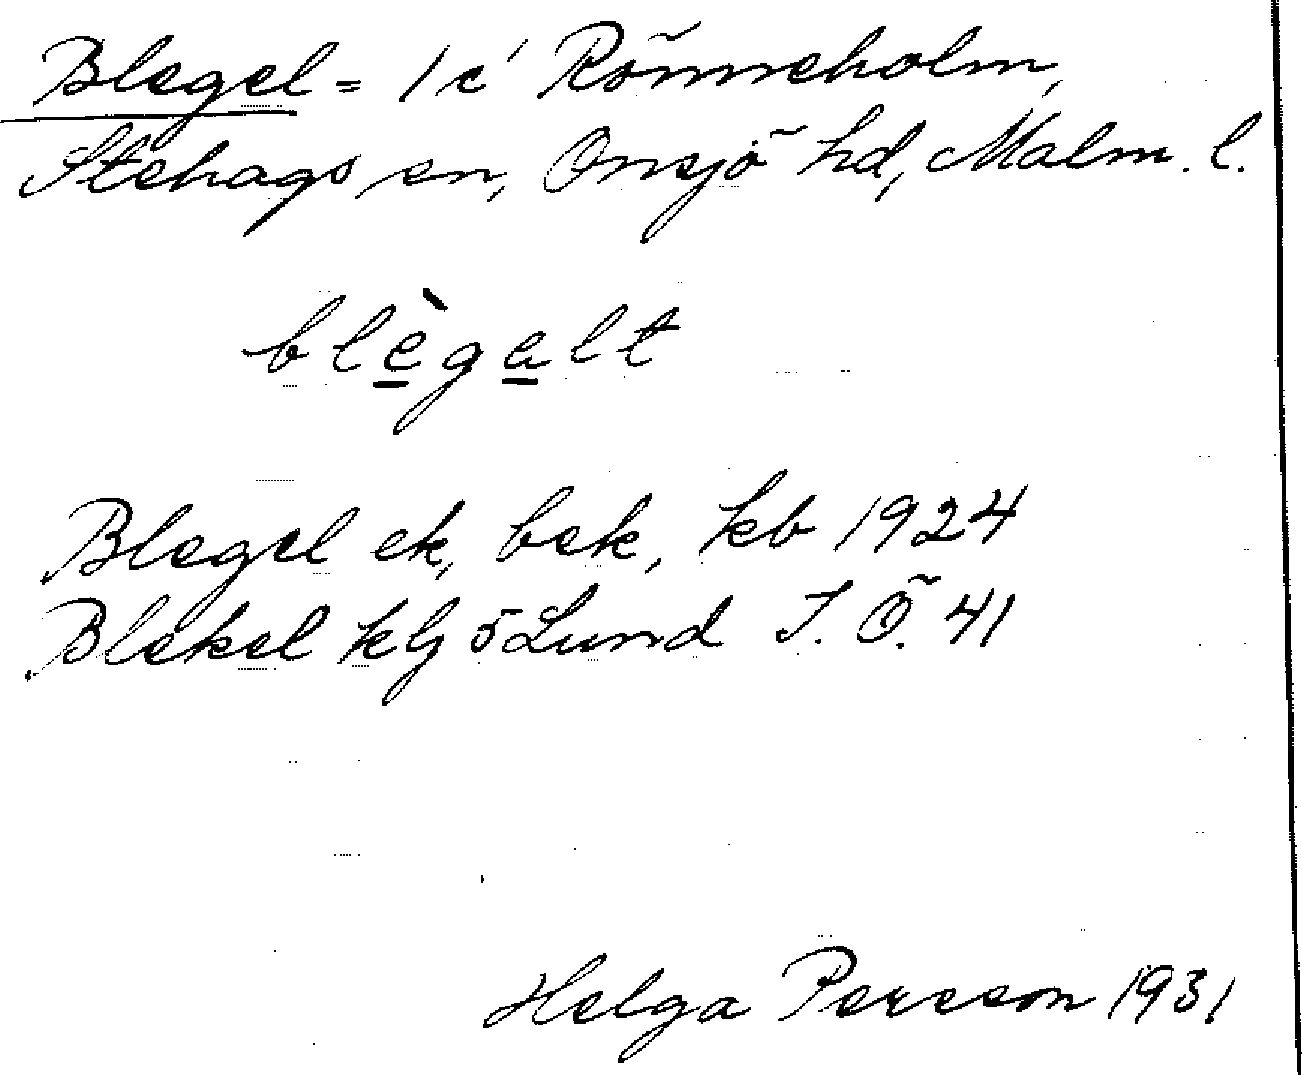 Blegel = 1 c' Rönneholm,
Stehags sn, Onsjö hd, Malm. l.
blègalt
Blegel ek, bek, kb 1924
Blekel klg ö Lund J. Ö. 41
Helga Persson 1931